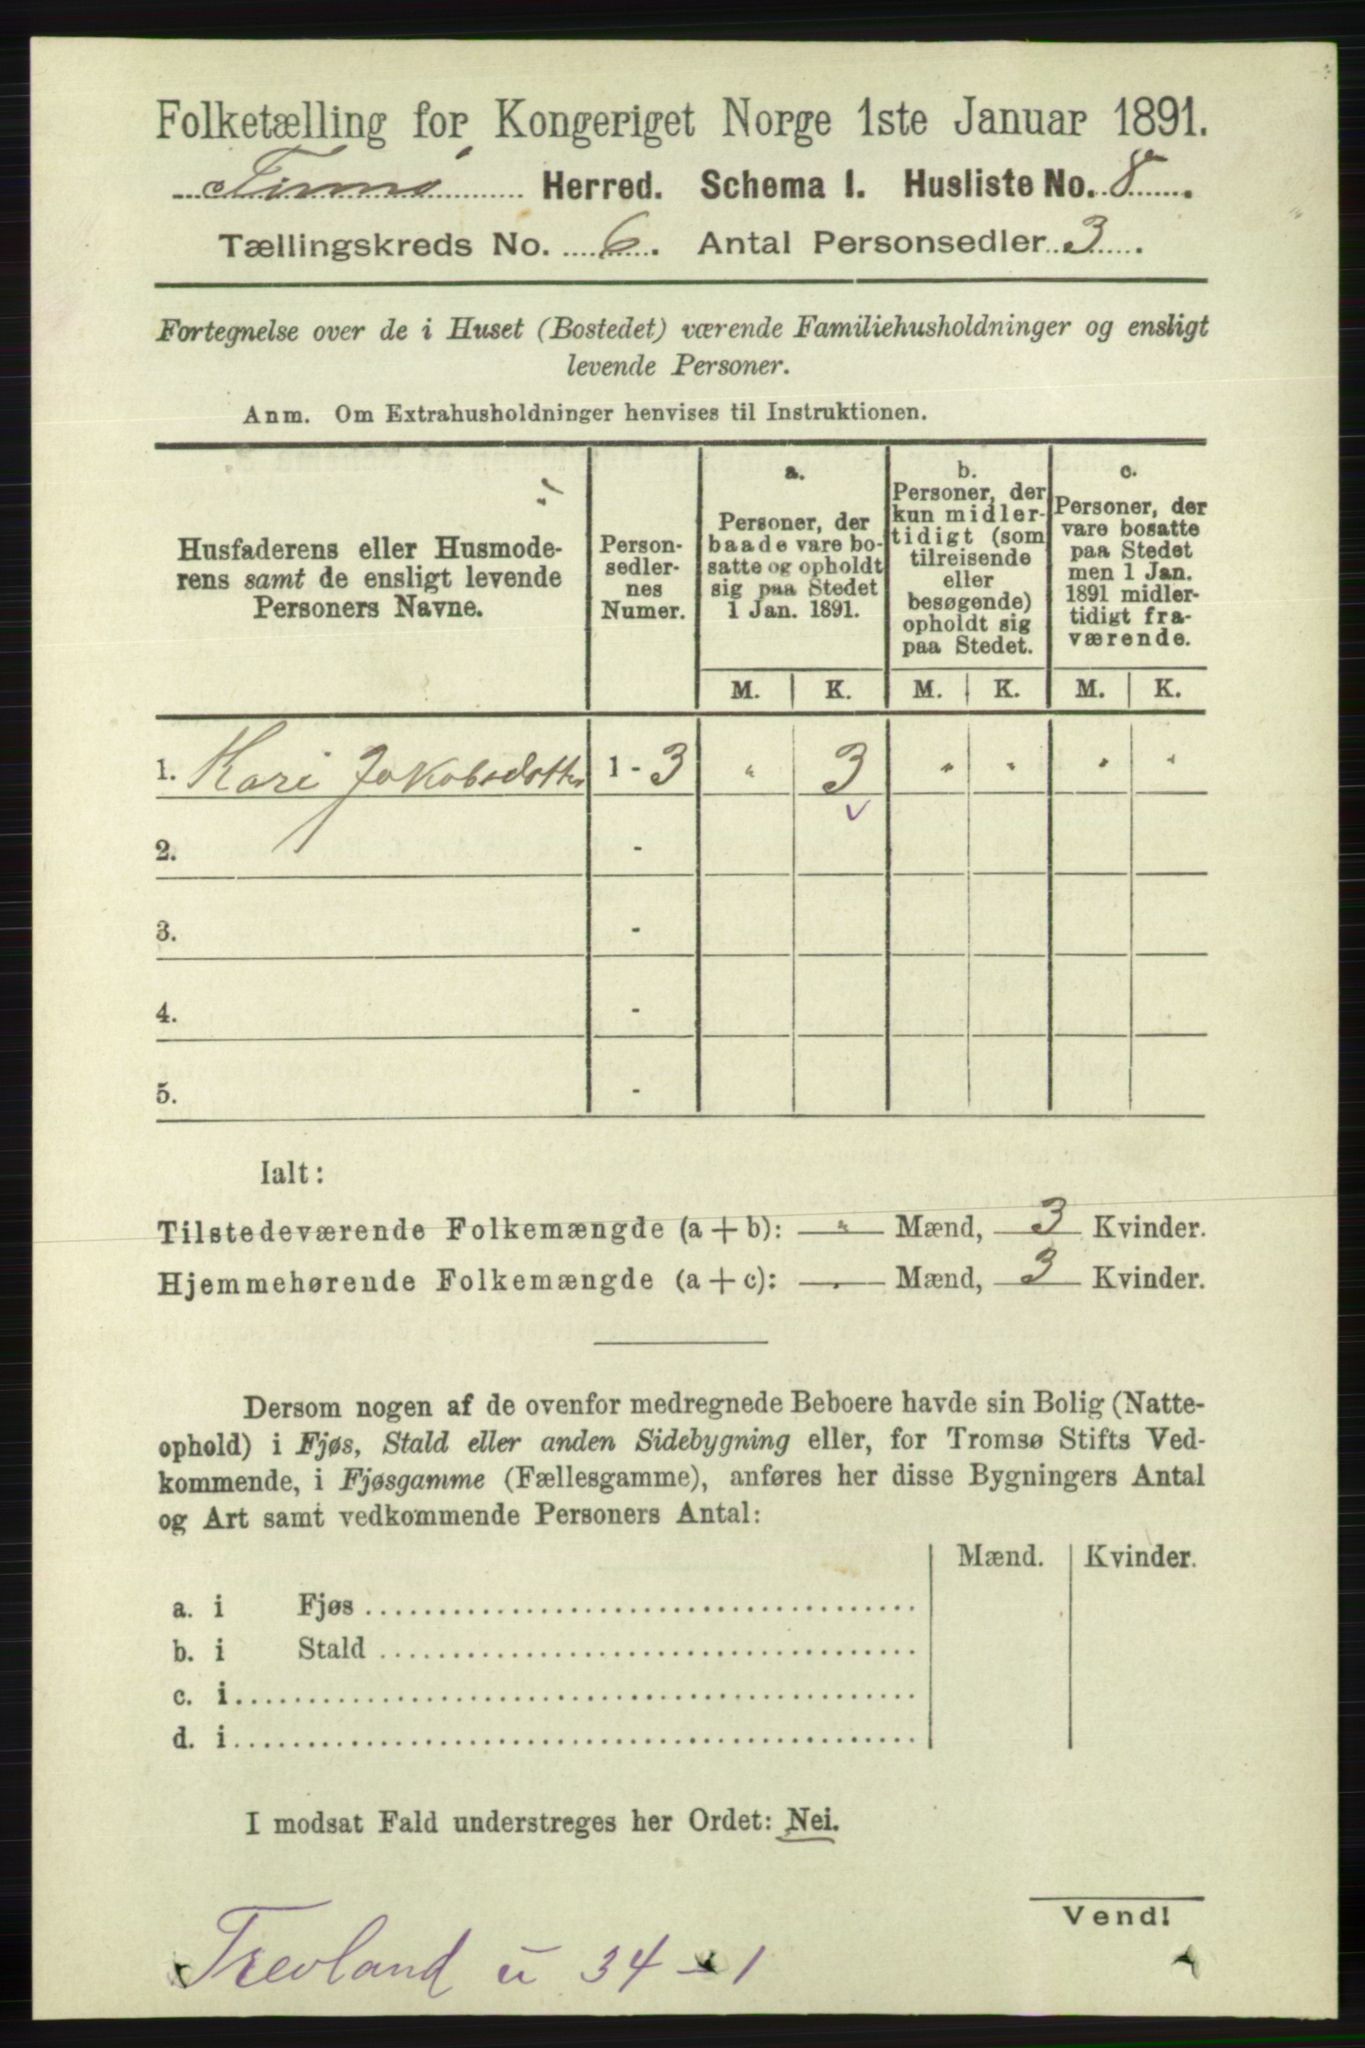 Folketælling for Kongeriget Norge 1ste Januar 1891.
Finnø Herred. Schema I. Husliste No. 8.
Tællingskreds No. 6. Antal Personsedler 3.
Fortegnelse over de i Huset (Bostedet) værende Familiehusholdninger og ensligt
levende Personer.
Anm. Om Extrahusholdninger henvises til Instruktionen.
Husfaderens eller Husmode-
rens samt de ensligt levende
Personers Navne.
Person-
sedler-
nes
Numer.
a.
Personer, der
baade vare bo-
satte og opholdt
sig paa Stedet
1 Jan. 1891.
b.
Personer, der
kun midler-
tidigt (som
tilreisende
eller
besøgende)
opholdt sig
paa Stedet.
c.
Personer, der
vare bosatte
paa Stedet
men 1 Jan.
1891 midler-
tidigt fra-
værende.
M. K. M. K. M. K.
1. Kari Jakobsdotter 1 - 3 " 3 " " " "
2. -
3. -
4. -
5. -
Ialt:
Tilstedeværende Folkemængde (a + b): " Mænd, 3 Kvinder.
Hjemmehørende Folkemængde (a + c): . Mænd, 3 Kvinder.
Dersom nogen af de ovenfor medregnede Beboere havde sin Bolig (Natte-
ophold) i Fjøs, Stald eller anden Sidebygning eller, for Tromsø Stifts Ved-
kommende, i Fjøsgamme (Fællesgamme), anføres her disse Bygningers Antal
og Art samt vedkommende Personers Antal:
Mænd. Kvinder.
a. i Fjøs
b. i Stald
c. i
d. i
I modsat Fald understreges her Ordet: Nei.
Vend!
Trevland u 34 - 1